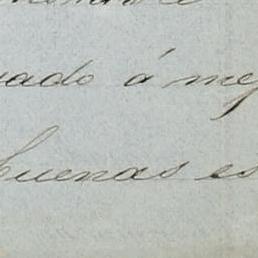 uado á mej
buenas es